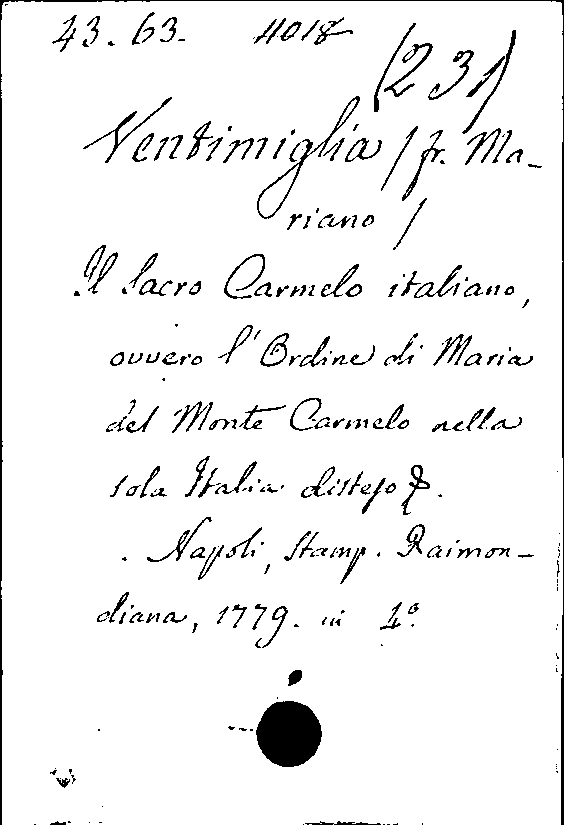 43. 63. 4018
(231)
Ventimiglia / fr. Ma-
riano /
Il Sacro Carmelo italiano,
ovvero l'Ordine di Maria
del Monte Carmelo nella
sola Italia disteso &.
Napoli, Stamp. Raimon-
diana, 1779. in 4º.